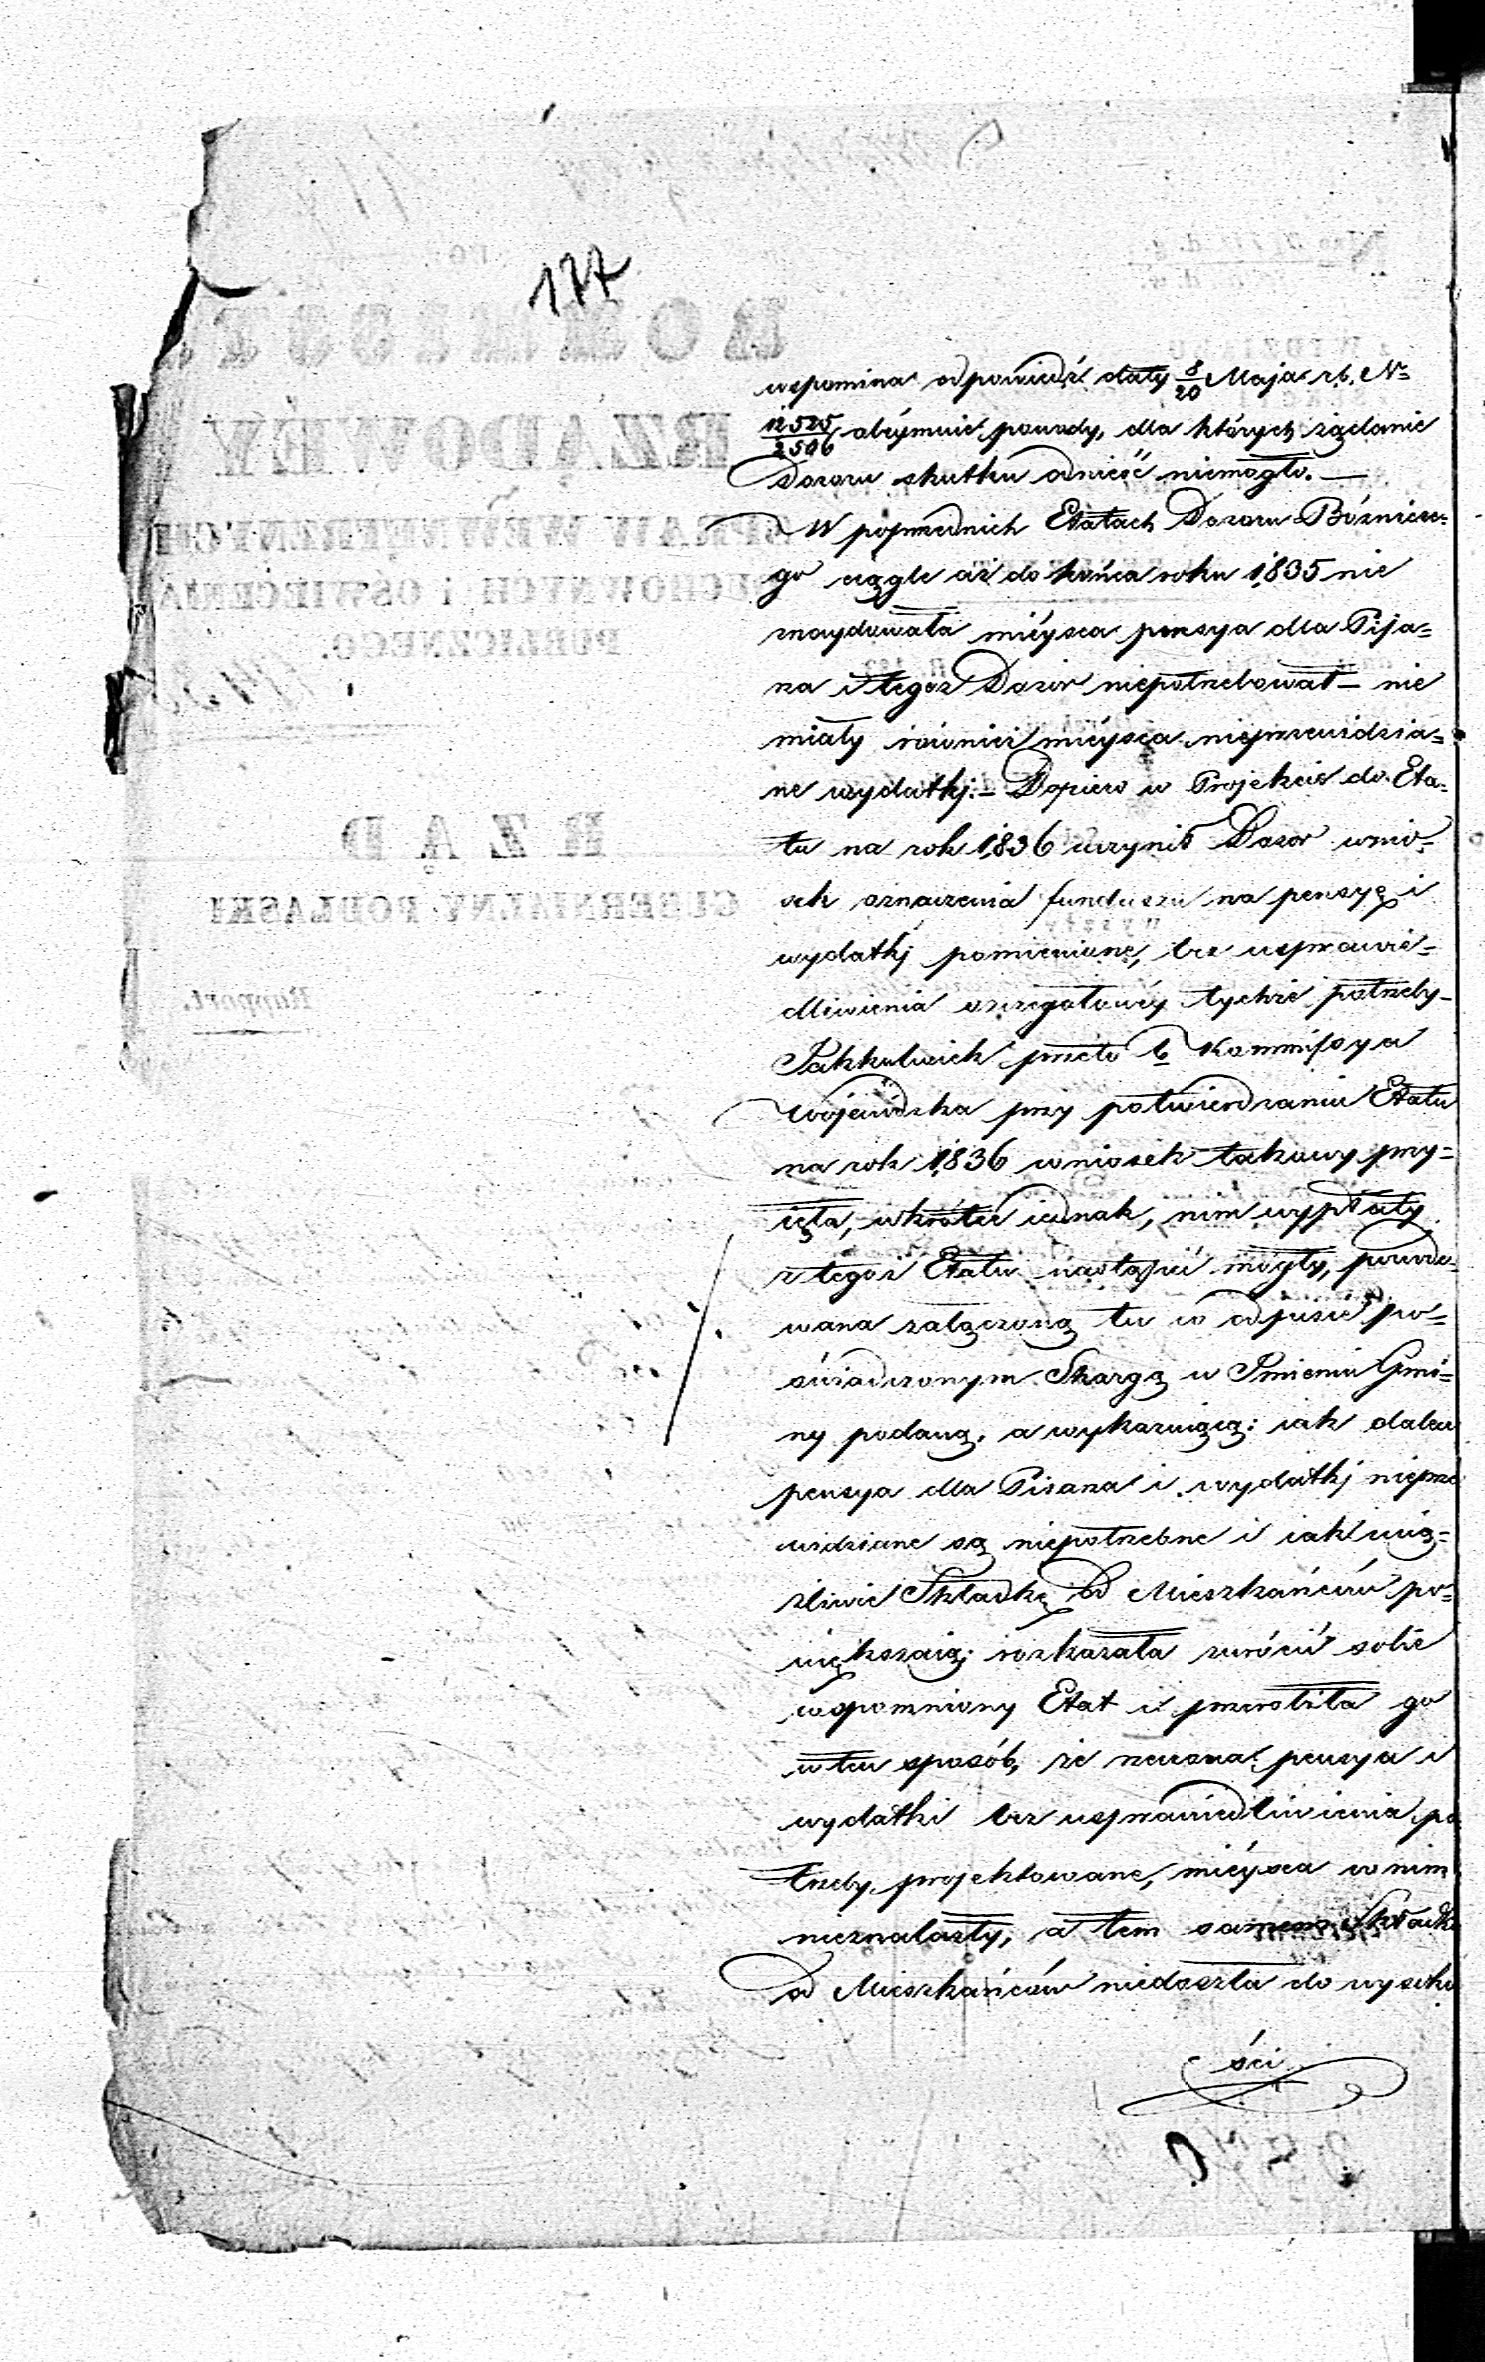 177
wspomina odpowiedź daty 8/20 Maja r.b. N=
12525/2506 obéymuie powody, dla których żądanie
Dozoru skutku odnieść niemogło. —
W poprzednich Etatach Dozoru Bóżnicze-
go ciągle aż do końca roku 1835 nie
znaydowała mieysca pensya dla Pisa=
rza i tegoż Dozór niepotrzebował — nie
miały również mieysca nieprzewidzia=
ne wydatkj. — Dopiero w Projekcie do Eta=
tu na rok 1836 uczynił Dozor wnio-
sek oznaczenia funduszu na pensyę i
wydatkj pomienione, bez usprawie-
dliwienia szczegółowéy tychże potrzeby —
Jakkolwiek przeto b. Kommissya
Wojewódzka przy potwierdzaniu Etatu
na rok 1836 wniosek takowy przy=
ięła, wkrótce iednak, nim wypłaty
z tegoż Etatu nastąpić mogły, powodo-
wana załączoną tu w odpisie po=
świadczonym Skargą w Imieniu Gmi=
ny podaną, a wykazuiącą: iak dalece
pensya dla Pisarza i wydatkj nieprze
widziane są niepotrzebne i iak ucią=
żliwie Składkę od Mieszkańców po=
większaią; rozkazała zwrócić sobie
wspomniony Etat i przerobiła go
w ten sposób, że rzeczona pensya i
wydatki bez usprawiedliwienia po
trzeby projektowane, mieysca w nim
nieznalazły, a tem samem Składka
od Mieszkańców niedoszła do wysoko
ści